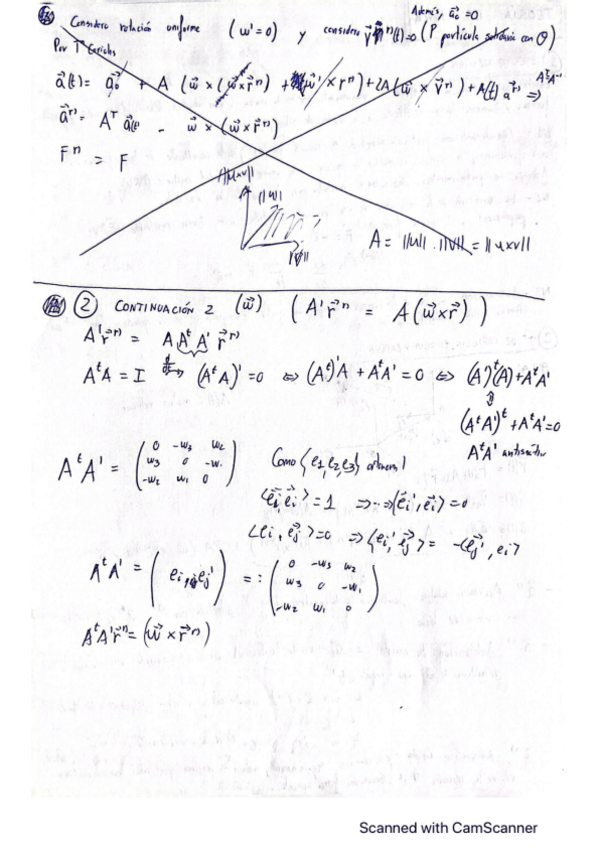 Además, a⃗₀ = 0
Considero rotación uniforme (ω' = 0) y considero v⃗ⁿ(t) = 0 (P partícula solidaria con O)
Por Tª Coriolis
a⃗(t) = a⃗₀ + A (ω⃗ × (ω⃗ × r⃗ⁿ) + ω⃗' × rⁿ) + 2A(ω⃗ × v⃗ⁿ) + A(t) a⃗ⁿ ⇒
a⃗ⁿ = Aᵀ a⃗ - ω⃗ × (ω⃗ × r⃗ⁿ)
Fⁿ = F
||u||
||v||
A = ||u|| . ||v|| = ||u×v||
② CONTINUACIÓN 2 (ω⃗) (A' r⃗ⁿ = A(ω⃗ × r⃗))
A' r⃗ⁿ = A Aᵗ A' r⃗ⁿ
AᵗA = I d/dt ⟹ (AᵗA)' = 0 ⇔ (Aᵗ)'A + AᵗA' = 0 ⇔ (A')ᵗ(A) + AᵗA'
⇕
(AᵗA')ᵗ + AᵗA' = 0
AᵗA'
AᵗA' = (0 -ω₃ ω₂
ω₃ 0 -ω₁
-ω₂ ω₁ 0)
Como {e₁, e₂, e₃} ortonormal
⟨e⃗ᵢ, e⃗ᵢ⟩ = 1 ⇒ ··· ⇒ ⟨e⃗ᵢ', e⃗ᵢ⟩ = 0
⟨eᵢ, e⃗ⱼ⟩ = 0 ⇒ ⟨eᵢ', e⃗ⱼ⟩ = -⟨e⃗ⱼ', eᵢ⟩
AᵗA' = (eᵢ, eⱼ') =: (0 -ω₃ ω₂
ω₃ 0 -ω₁
-ω₂ ω₁ 0)
AᵗA' r⃗ⁿ = (ω⃗ × r⃗ⁿ)
Scanned with CamScanner